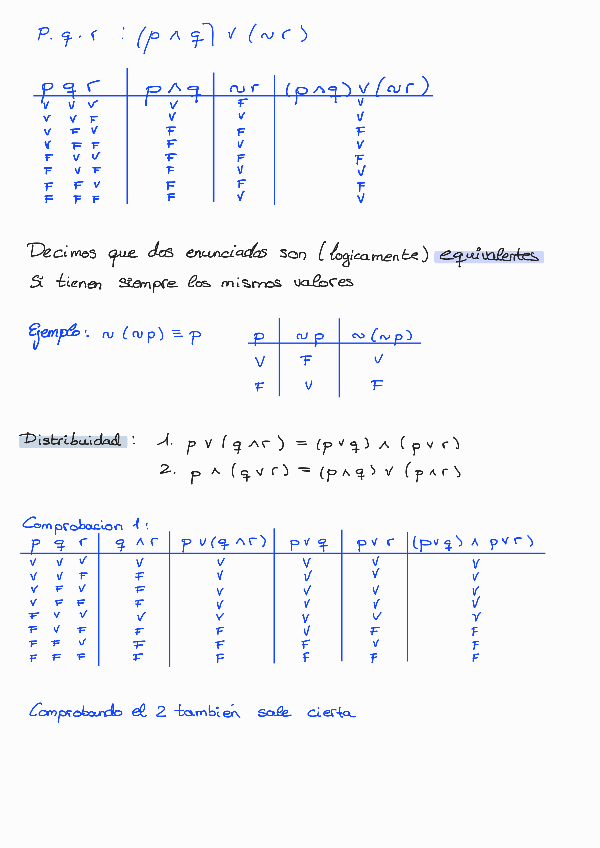 p.q.r : (p ∧ q) ∨ (~r)
p q r | p ∧ q | ~r | (p∧q) ∨ (~r)
V V V | V | F | V
V V F | V | V | V
V F V | F | F | F
V F F | F | V | V
F V V | F | F | F
F V F | F | V | V
F F V | F | F | F
F F F | F | V | V
Decimos que dos enunciados son (logicamente) equivalentes
Si tienen siempre los mismos valores
Ejemplo: ~(~p) ≡ p
p | ~p | ~(~p)
V | F | V
F | V | F
Distribuidad : 1. p ∨ (q ∧ r) = (p ∨ q) ∧ (p ∨ r)
2. p ∧ (q ∨ r) = (p ∧ q) ∨ (p ∧ r)
Comprobacion 1:
p q r | q ∧ r | p ∨ (q ∧ r) | p ∨ q | p ∨ r | (p∨q) ∧ p∨r)
V V V | V | V | V | V | V
V V F | F | V | V | V | V
V F V | F | V | V | V | V
V F F | F | V | V | V | V
F V V | V | V | V | V | V
F V F | F | F | V | F | F
F F V | F | F | F | V | F
F F F | F | F | F | F | F
Comprobando el 2 también sale cierta